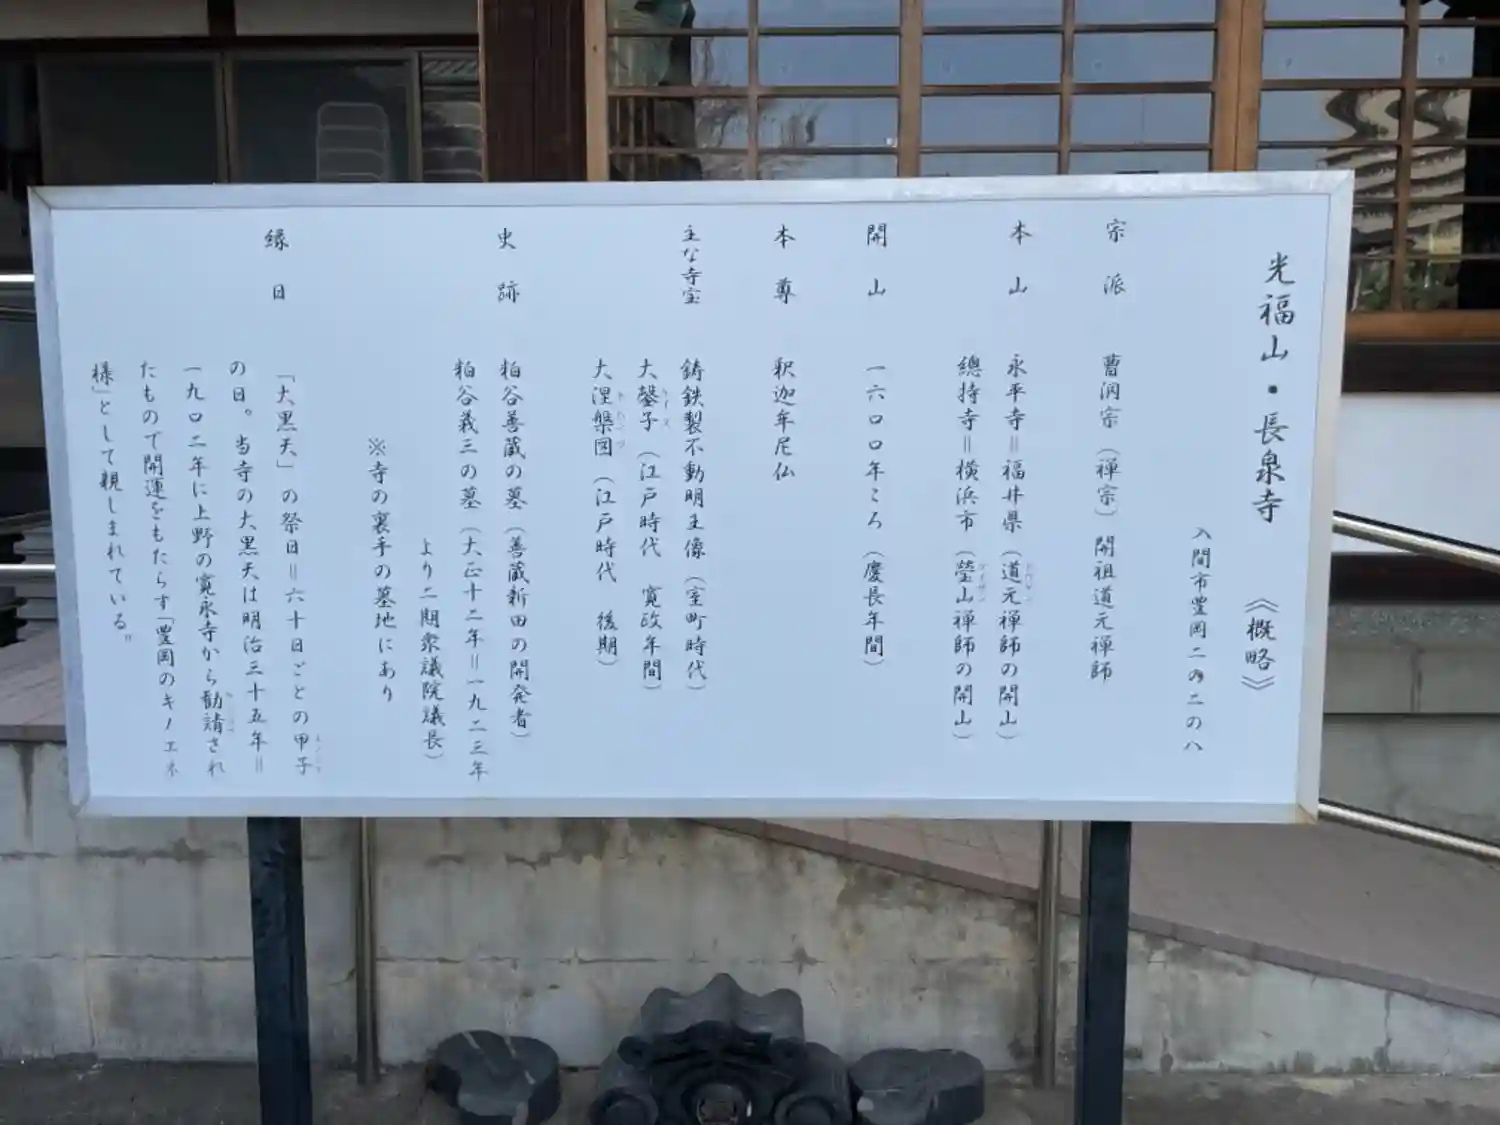 光福山・長泉寺 《概略》
入間市豊岡二の二の八
宗派 曹洞宗（禅宗）開祖道元禅師
本山 永平寺＝福井県（道元禅師の開山）
總持寺＝横浜市（瑩山禅師の開山）
開山 一六〇〇年ころ（慶長年間）
本尊 釈迦牟尼仏
主な寺宝 鋳鉄製不動明王像（室町時代）
大鏧子（江戸時代 寛政年間）
大涅槃図（江戸時代 後期）
史跡 粕谷善蔵の墓（善蔵新田の開発者）
粕谷義三の墓（大正十二年＝一九二三年
より二期衆議院議長）
※寺の裏手の墓地にあり
縁日 「大黒天」の祭日＝六十日ごとの甲子
の日。当寺の大黒天は明治三十五年＝
一九〇二年に上野の寛永寺から勧請され
たもので開運をもたらす「豊岡のキノエネ
様」として親しまれている。